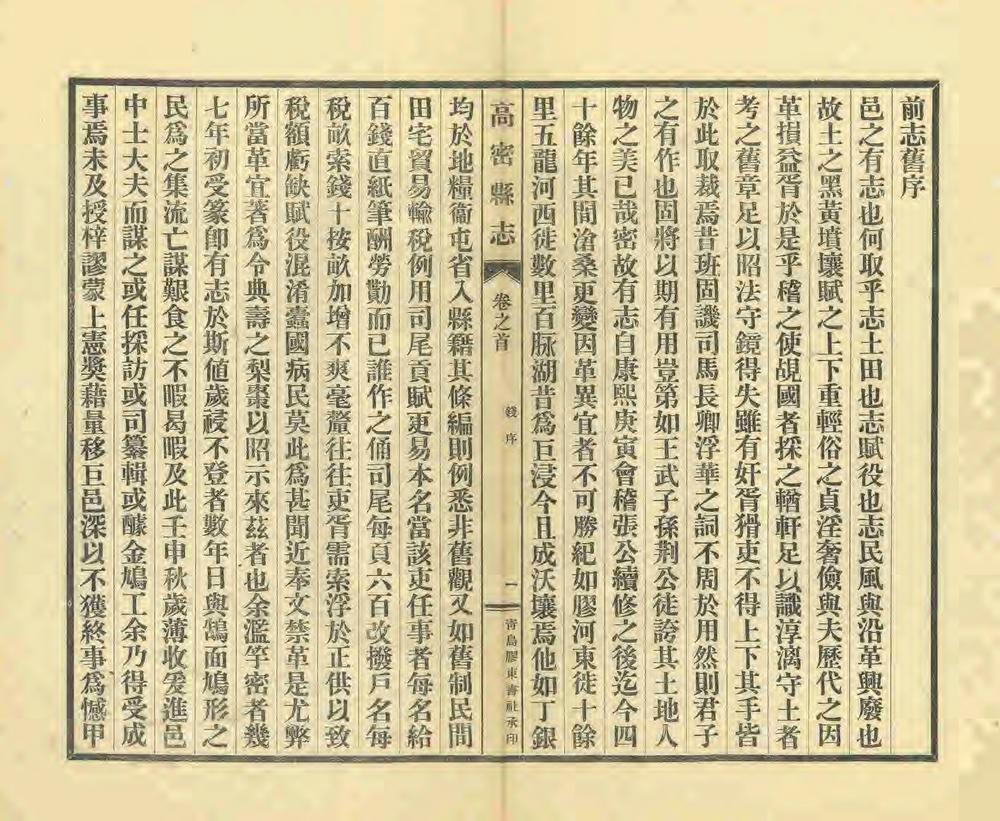 前志舊序
邑之有志也何取乎志土田也志賦役也志民風與沿革興廢也
故土之黑黃墳壤賦之上下重輕俗之貞淫奢儉與夫歷代之因
革損益胥於是乎稽之使覘國者採之輶軒足以識淳漓守土者
考之舊章足以昭法守鏡得失雖有奸胥猾吏不得上下其手皆
於此取裁焉昔班固譏司馬長卿浮華之詞不周於用然則君子
之有作也固將以期有用豈第如王武子孫荆公徒誇其土地人
物之美已哉密故有志自康熙庚寅會稽張公續修之後迄今四
十餘年其間滄桑更變因革異宜者不可勝紀如膠河東徙十餘
里五龍河西徙數里百脉湖昔爲巨浸今且成沃壤焉他如丁銀
高密縣志
卷之首
錢序
一
青島膠東書社承印
均於地糧衞屯省入縣籍其條編則例悉非舊觀又如舊制民間
田宅貿易輸稅例用司尾貢賦更易本名當該吏任事者每名給
百錢直紙筆酬勞勩而已誰作之俑司尾每頁六百改撥戶名每
稅畝索錢十按畝加增不爽毫釐往往吏胥需索浮於正供以致
稅額虧缺賦役混淆蠹國病民莫此爲甚聞近奉文禁革是尤弊
所當革宜著爲令典壽之梨棗以昭示來茲者也余濫竽密者幾
七年初受篆卽有志於斯值歲祲不登者數年日與鵠面鳩形之
民爲之集流亡謀艱食之不暇曷暇及此壬申秋歲薄收爰進邑
中士大夫而謀之或任採訪或司纂輯或醵金鳩工余乃得受成
事焉未及授梓謬蒙上憲獎藉量移巨邑深以不獲終事爲憾甲